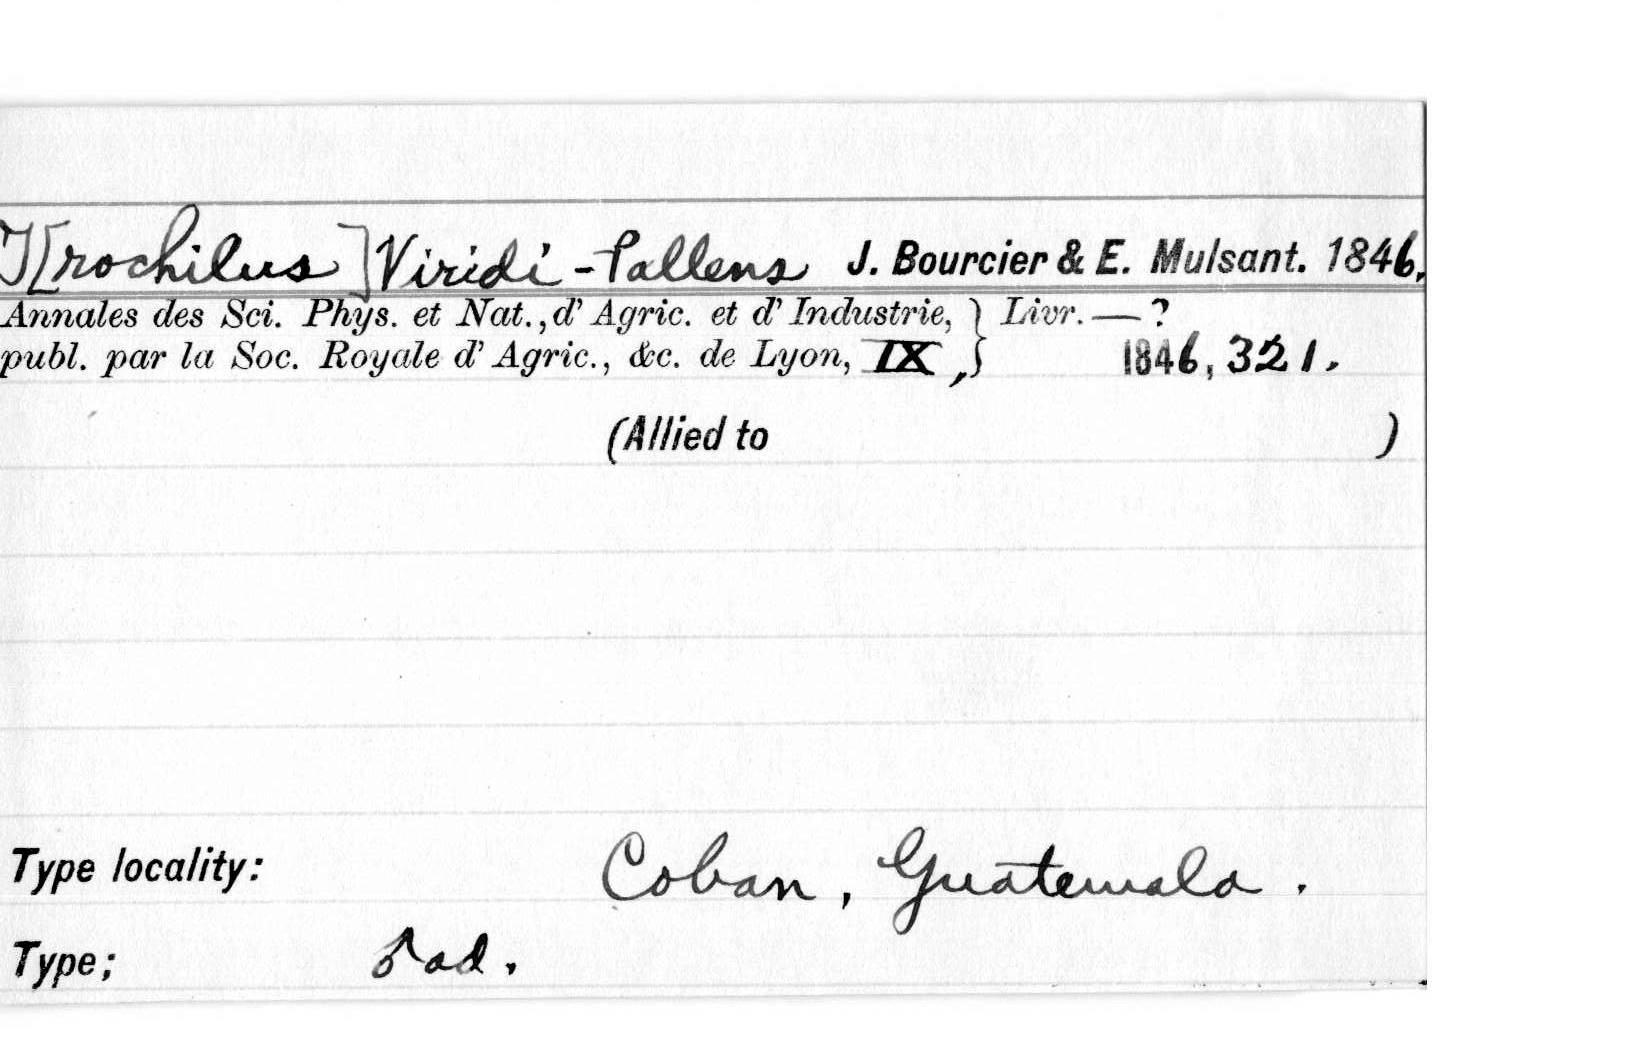 T[rochilus] Viridi-Pallens J. Bourcier & E. Mulsant. 1846,
Annales des Sci. Phys. et Nat., d' Agric. et d' Industrie, } Livr. — ?
publ. par la Soc. Royale d' Agric., &c. de Lyon, IX, } 1846, 321.
(Allied to )
Type locality: Coban, Guatemala.
Type; ♂ ad.